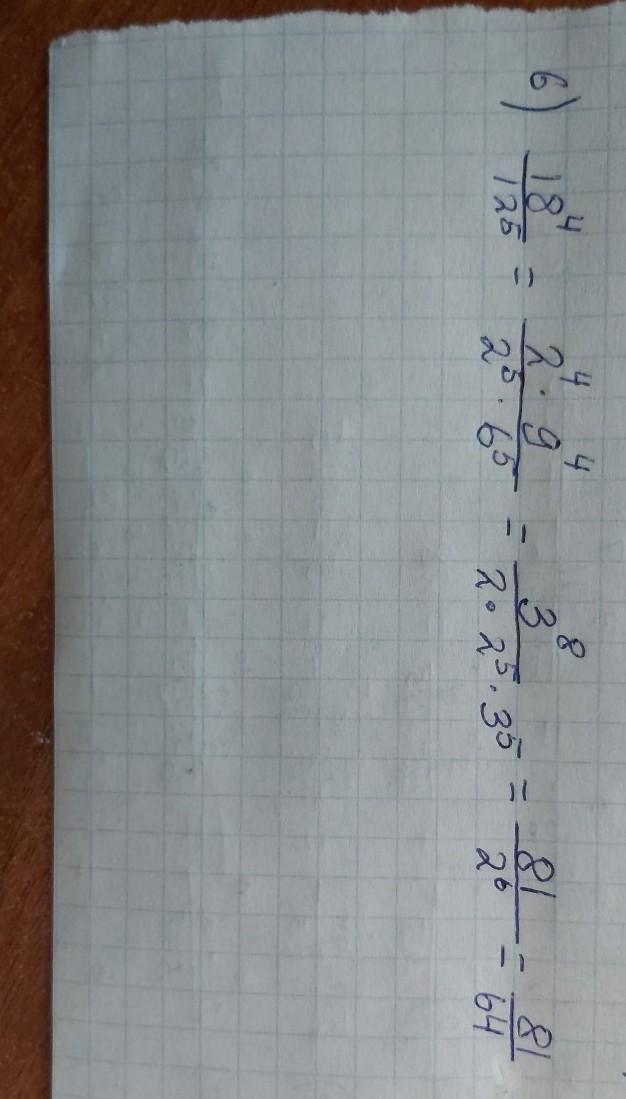 в) 18⁴/12⁵ = 2⁴·9⁴/2⁵·6⁵ = 3⁸/2·2⁵·3⁵ = 81/2⁶ = 81/64